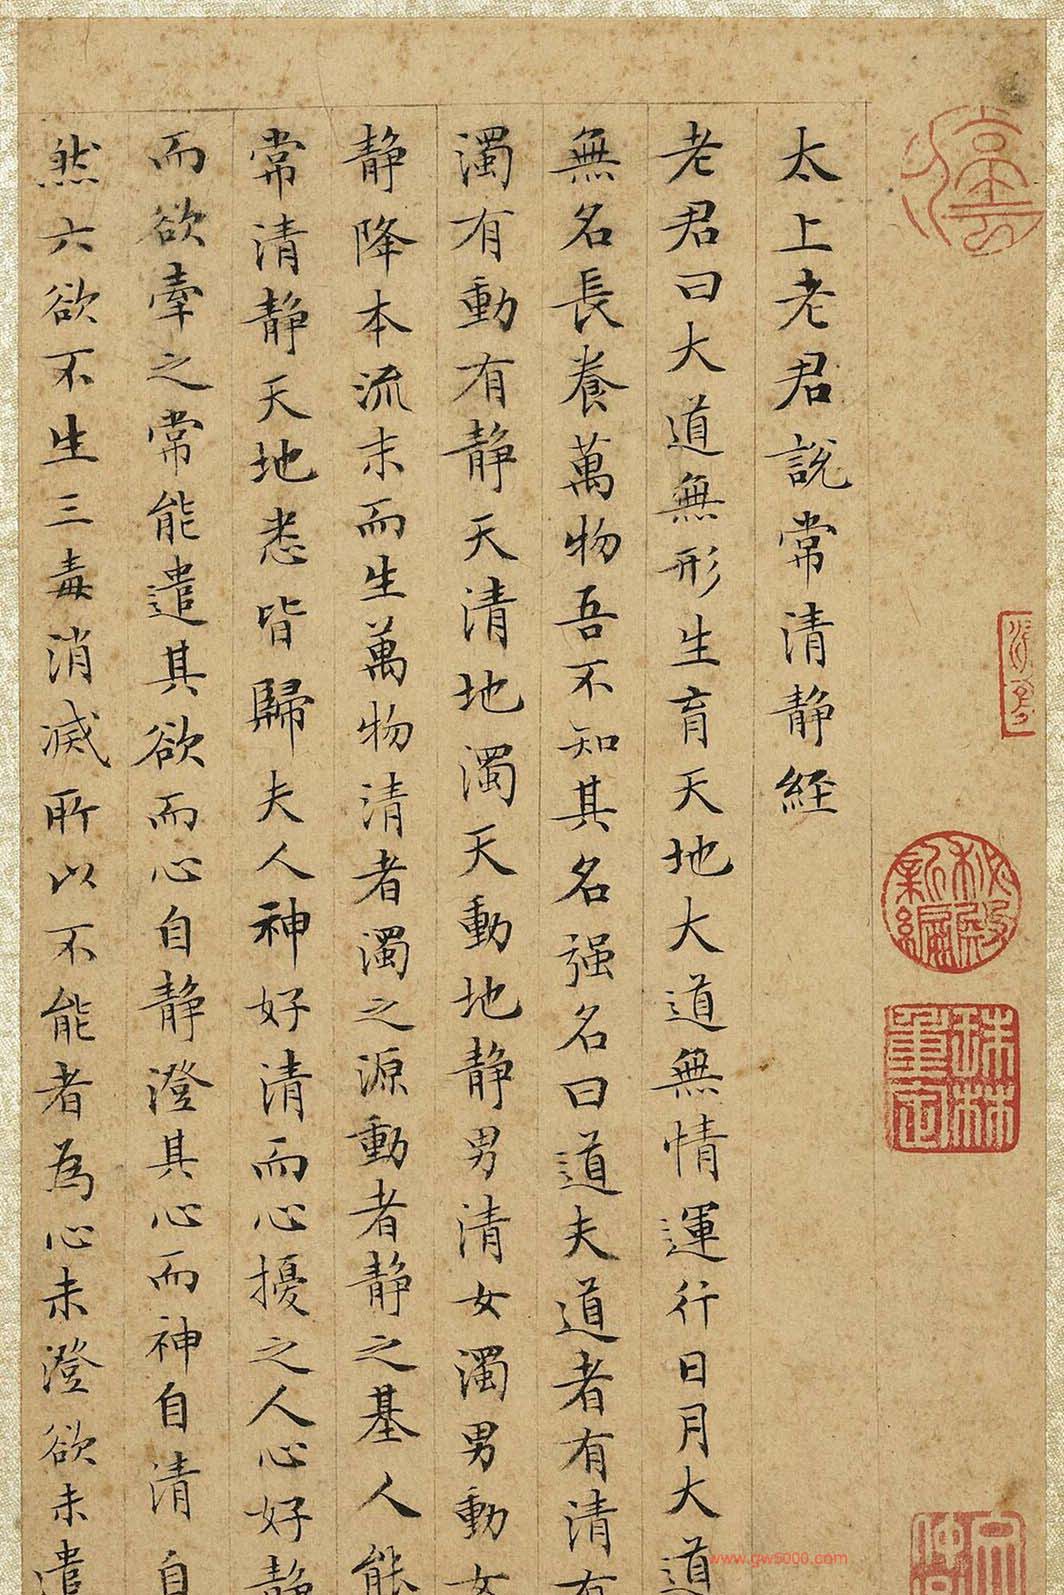 太上老君說常清静經
老君曰大道無形生育天地大道無情運行日月大道
無名長養萬物吾不知其名强名曰道夫道者有清有
濁有動有静天清地濁天動地静男清女濁男動女
静降本流末而生萬物清者濁之源動者静之基人能
常清静天地悉皆歸夫人神好清而心擾之人心好静
而欲牽之常能遣其欲而心自静澄其心而神自清自
然六欲不生三毒消滅所以不能者為心未澄欲未遣
秘殿新編
珠林重定
www.gw5000.com